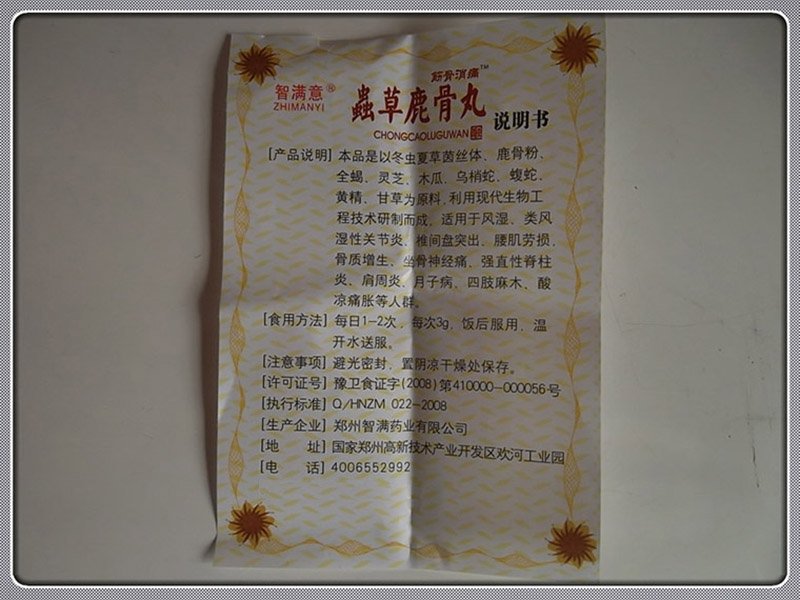 智满意®
ZHIMANYI
筋骨消痛™
蟲草鹿骨丸
说明书
CHONGCAOLUGUWAN
[产品说明] 本品是以冬虫夏草菌丝体、鹿骨粉、
全蝎、灵芝、木瓜、乌梢蛇、蝮蛇、
黄精、甘草为原料,利用现代生物工
程技术研制而成，适用于风湿、类风
湿性关节炎、椎间盘突出、腰肌劳损、
骨质增生、坐骨神经痛、强直性脊柱
炎、肩周炎、月子病、四肢麻木、酸
凉痛胀等人群。
[食用方法] 每日1-2次，每次3g，饭后服用，温
开水送服。
[注意事项] 避光密封，置阴凉干燥处保存。
[许可证号] 豫卫食证字(2008)第410000-000056号
[执行标准] Q/HNZM 022-2008
[生产企业] 郑州智满药业有限公司
[地 址] 国家郑州高新技术产业开发区欢河工业园
[电 话] 4006552992